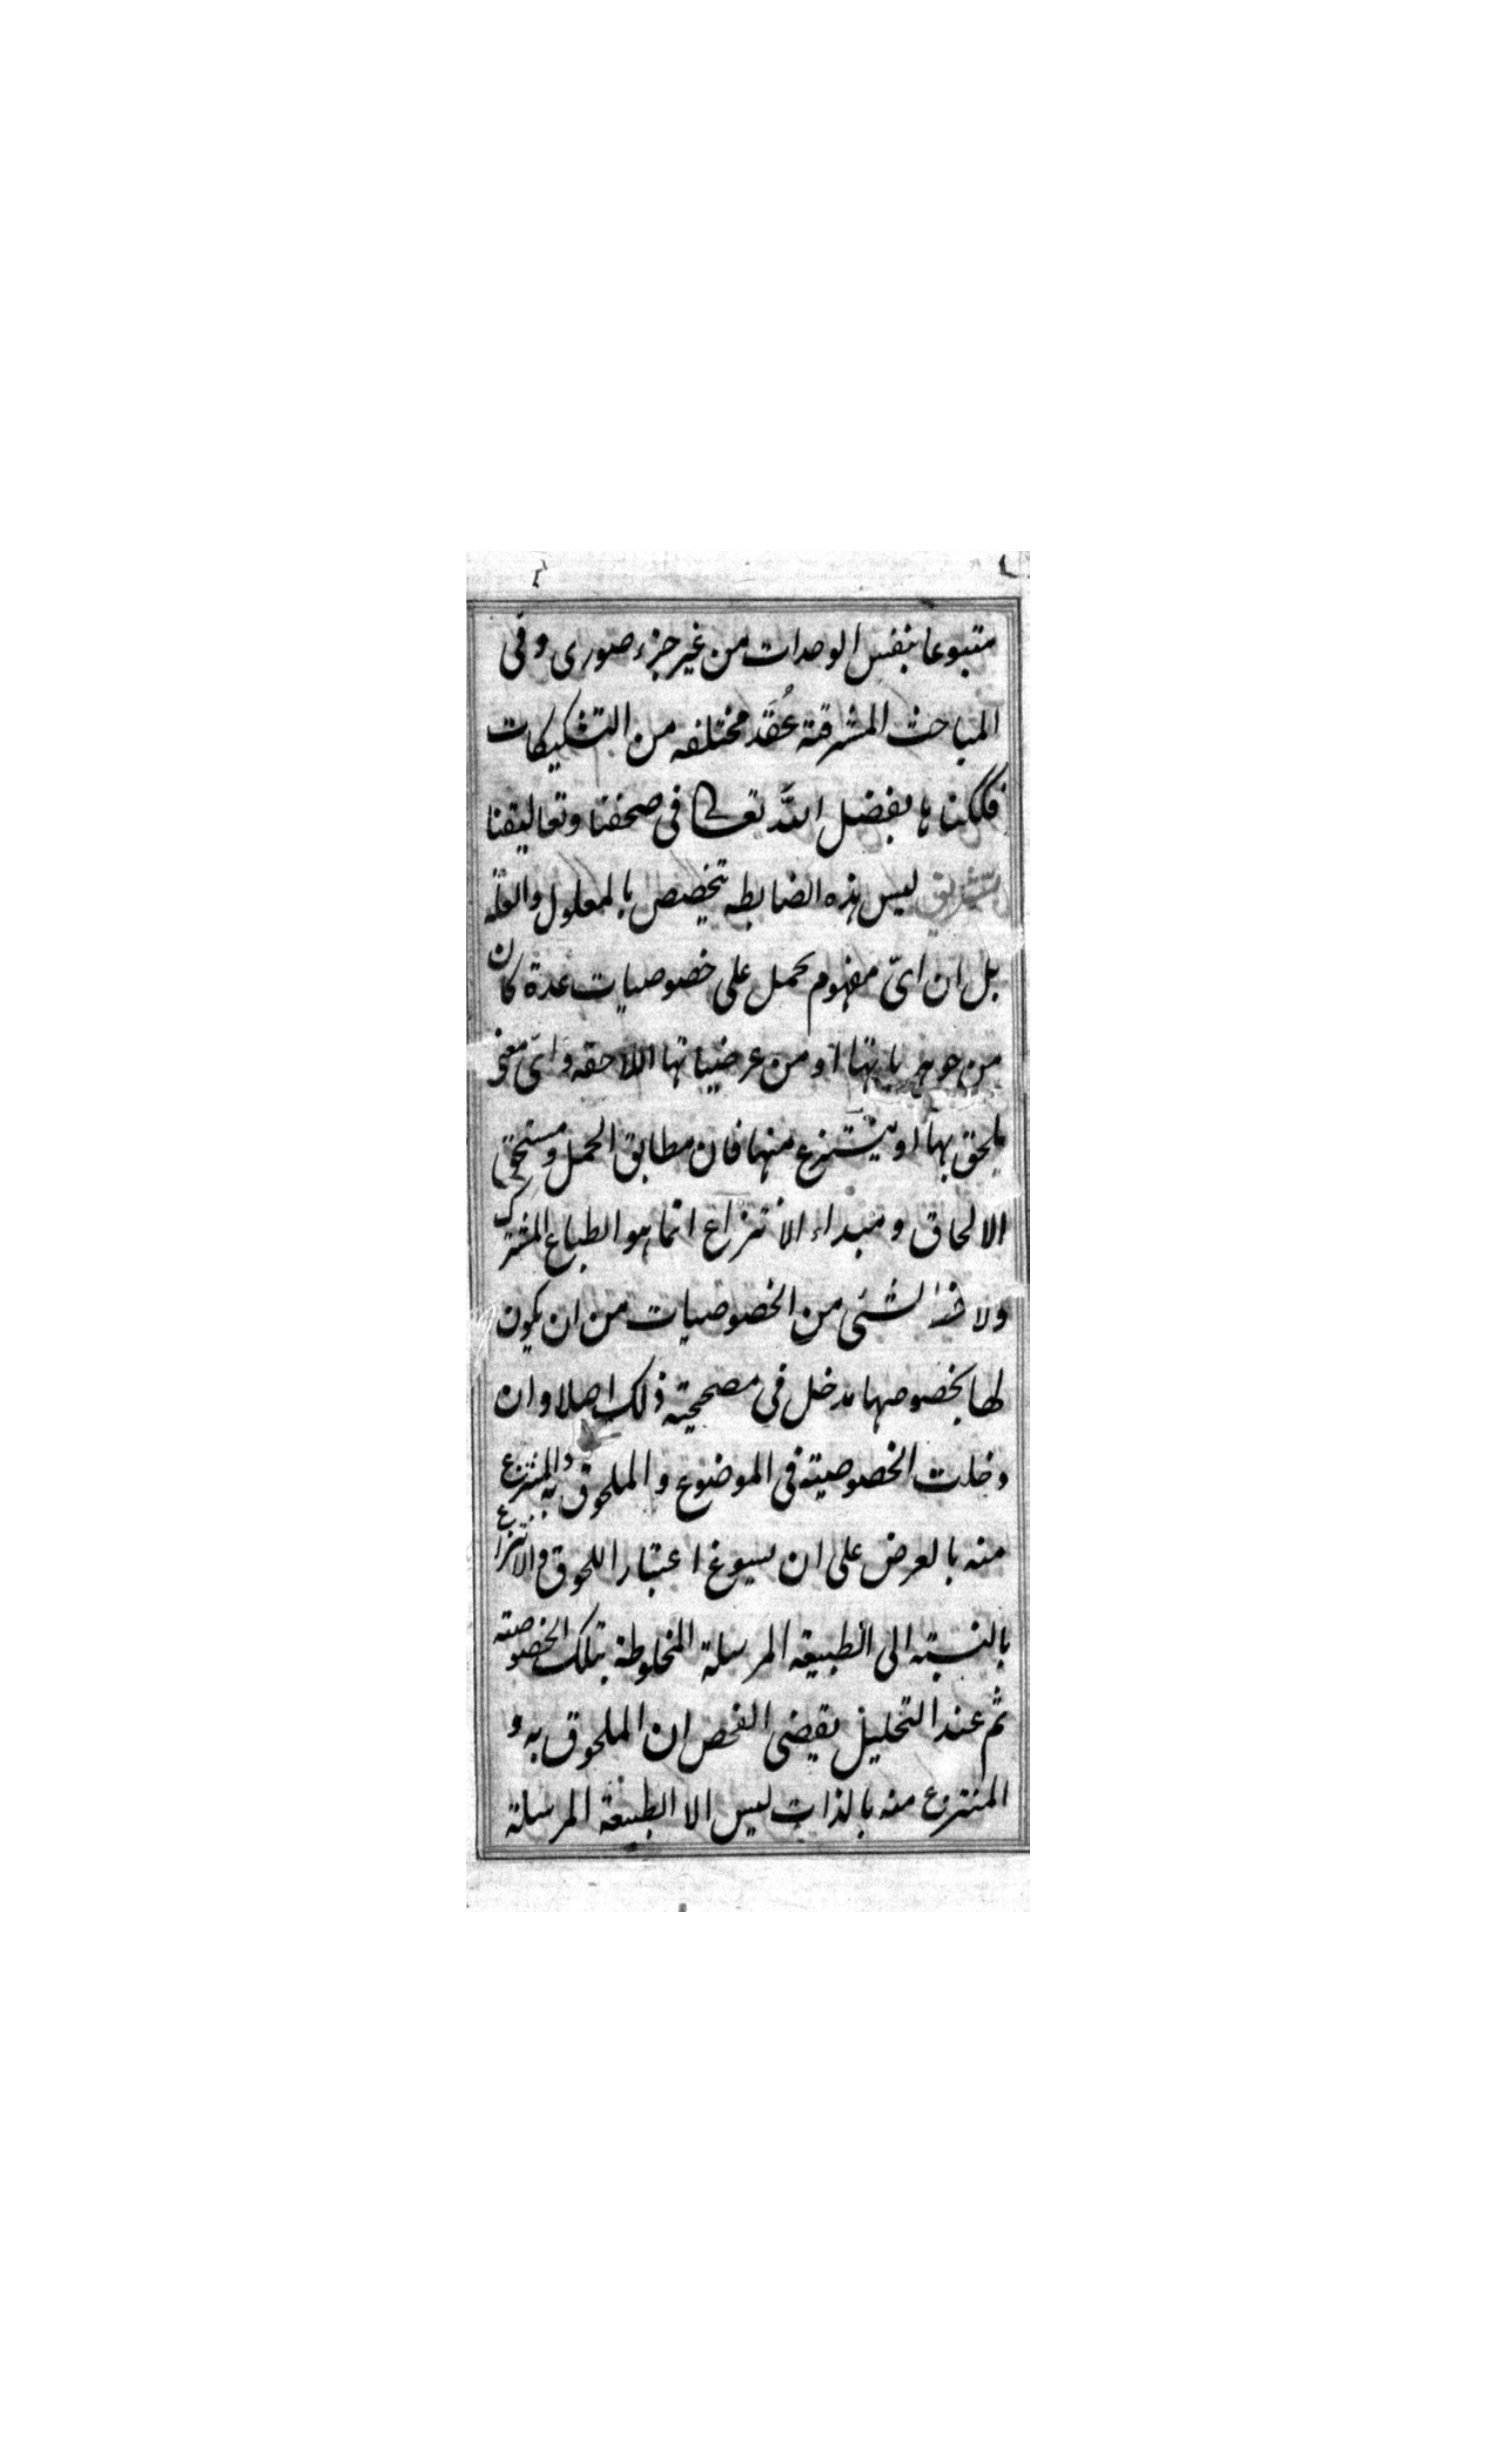 متبوعا بنفس الوحدات من غير جزء صورى وفى
المباحث المشرقية عُقَد مختلفه من التشكيكات
فككناها بفضل الله تعالى فى صحفنا وتعاليقنا
تشريق ليس هذه الضابطه تخصيص بالمعلول والعلة
بل ان اىّ مفهوم يحمل على خصوصيات عدة كان
من جوهرياتها او من عرضياتها اللاحقه واىّ معنى
يلحق بها او ينتزع منها فان مطابق الحمل ومستحق
الالحاق ومبداء الانتزاع انما هو الطباع المشترك
ولا لشئ من الخصوصيات من ان يكون
لها بخصوصها مدخل فى مصححية ذلك اصلا وان
دخلت الخصوصية فى الموضوع والملحوق به والمنتزع
منه بالعرض على ان يسوغ اعتبار اللحوق والانتزاع
بالنسبته الى الطبيعه المرسلة المخلوطة بتلك الخصوصية
ثم عند التحليل يقضى الفحص ان الملحوق به و
المنتزع منه بالذات ليس الا الطبيعة المرسلة